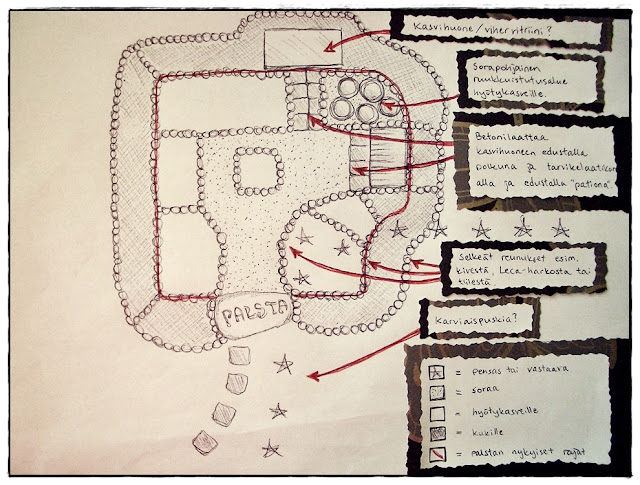 Kasvihuone/vihervitriini?
Sorapohjainen
ruukkuistutusalue
hyötykasveille.
Betonilaattaa
kasvihuoneen edustalla
polkuna ja tarvikelaatikon
alla ja edustalla "pationa".
Selkeät reunukset esim.
kivestä, Leca-harkosta tai
tiilestä.
Karviaispuskia?
PALSTA
= pensas tai vastaava
= soraa
= hyötykasveille
= kukille
= palstan nykyiset rajat